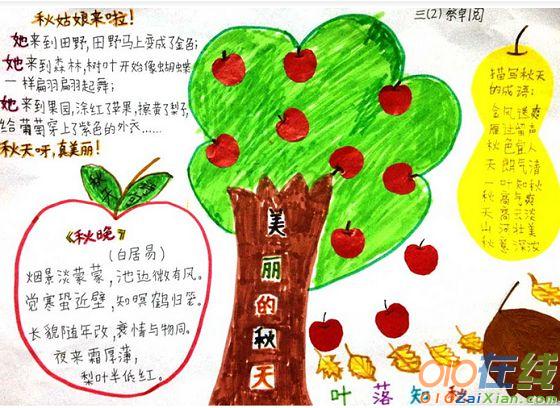 秋姑娘来啦!
三(2)
她来到田野,田野马上变成了金色;
她来到森林,树叶开始像蝴蝶
一样翩翩起舞;
她来到果园,涂红了苹果,擦黄了梨子,
给葡萄穿上了紫色的外衣……
秋天呀,真美丽!
《秋晚》
(白居易)
烟景淡蒙蒙,池边微有风。
觉寒蛩近壁,知暝鹤归笼。
长貌随年改,衰情与物同。
夜来霜厚薄,
梨叶半低红。
美丽的秋天
描写秋天
的成语:
金风送爽
雁过留声
秋色宜人
天朗气清
一叶知秋
秋高气爽
天高云淡
山河壮美
秋意深浓
叶落知秋
010在线
010zaiXian.com